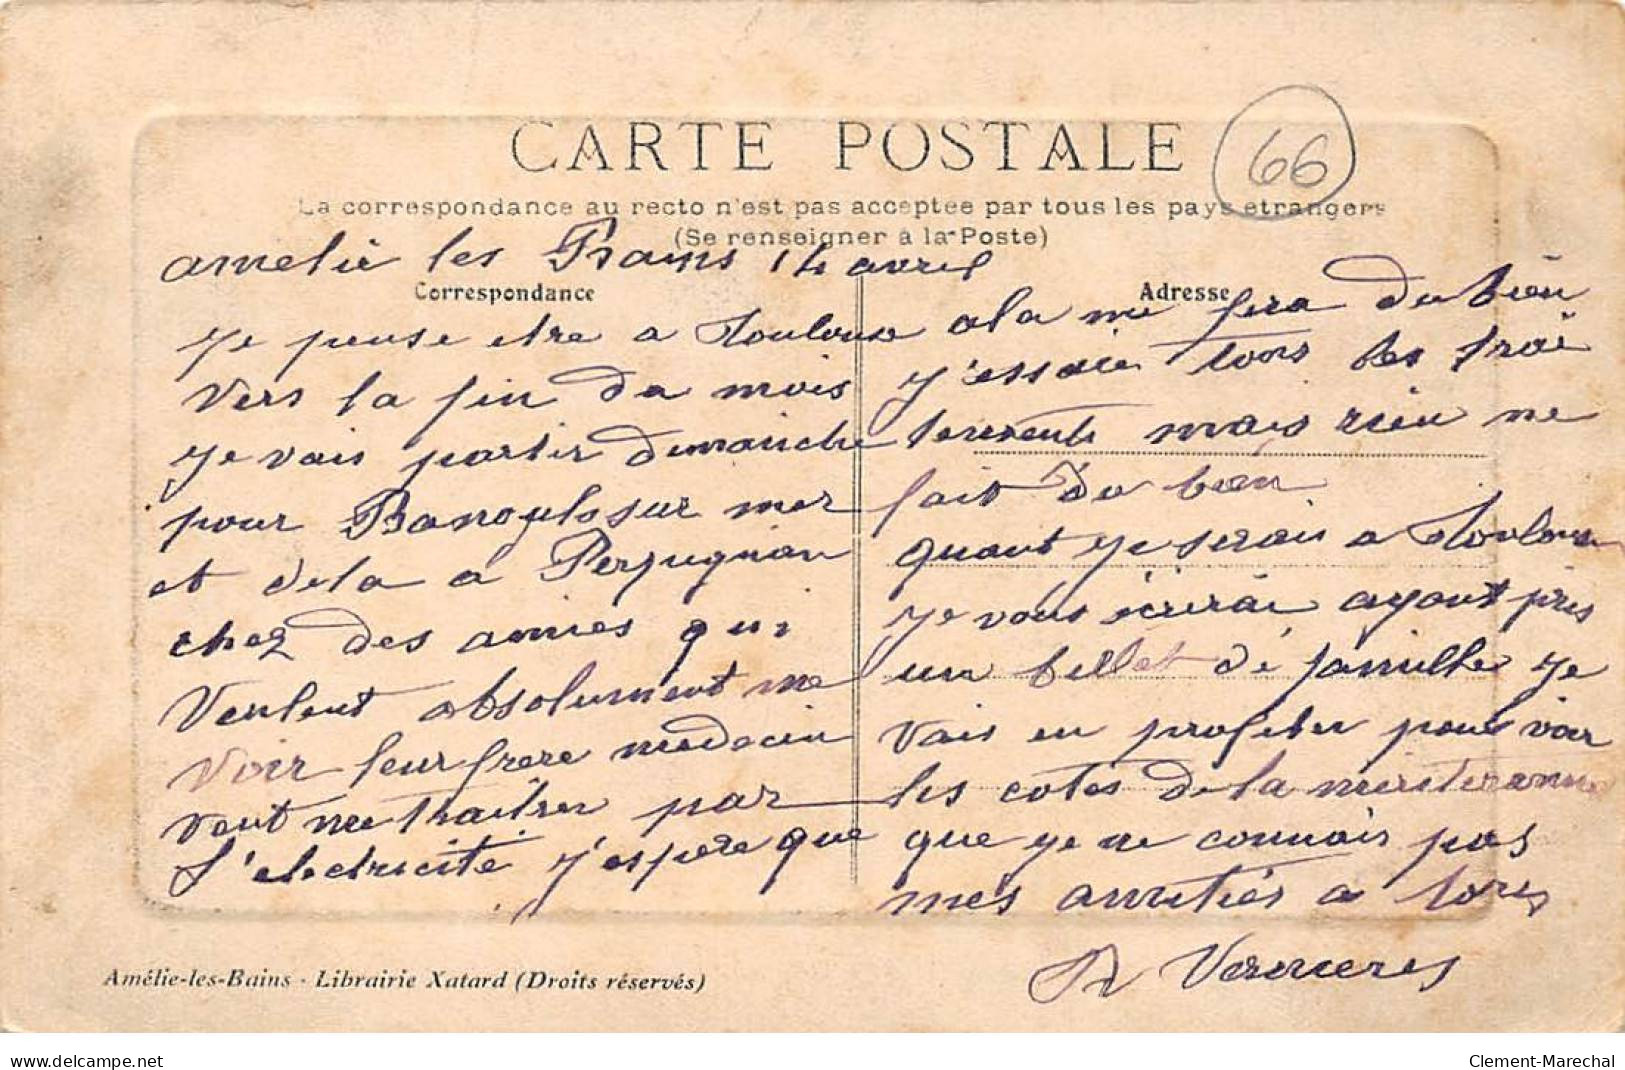 CARTE POSTALE
66
La correspondance au recto n'est pas acceptée par tous les pays étrangers
(Se renseigner à la Poste)
amelie les Bains 14 avril
Correspondance
Je pense etre a Toulouse
vers la fin du mois
Je vais partir dimanche
pour Banoyls sur mer
et dela a Perpugnan
chez des amies qui
veulent absolument me
voir leur frere medecin
veut me traiter par
l'electricité j'espere que
Adresse
cela me fera du bien
j'essaie tous les trai
tements mais rien ne
fait du bien
quant je serais a Toulouse
Je vous écrirai ayant pris
un billet dé famille Je
vais en profiter pour voir
les cotes de la mediteranné
que je ne connais pas
mes amitiés a tous
Vernieres
Amélie-les-Bains - Librairie Xatard (Droits réservés)
www.delcampe.net
Clement-Marechal